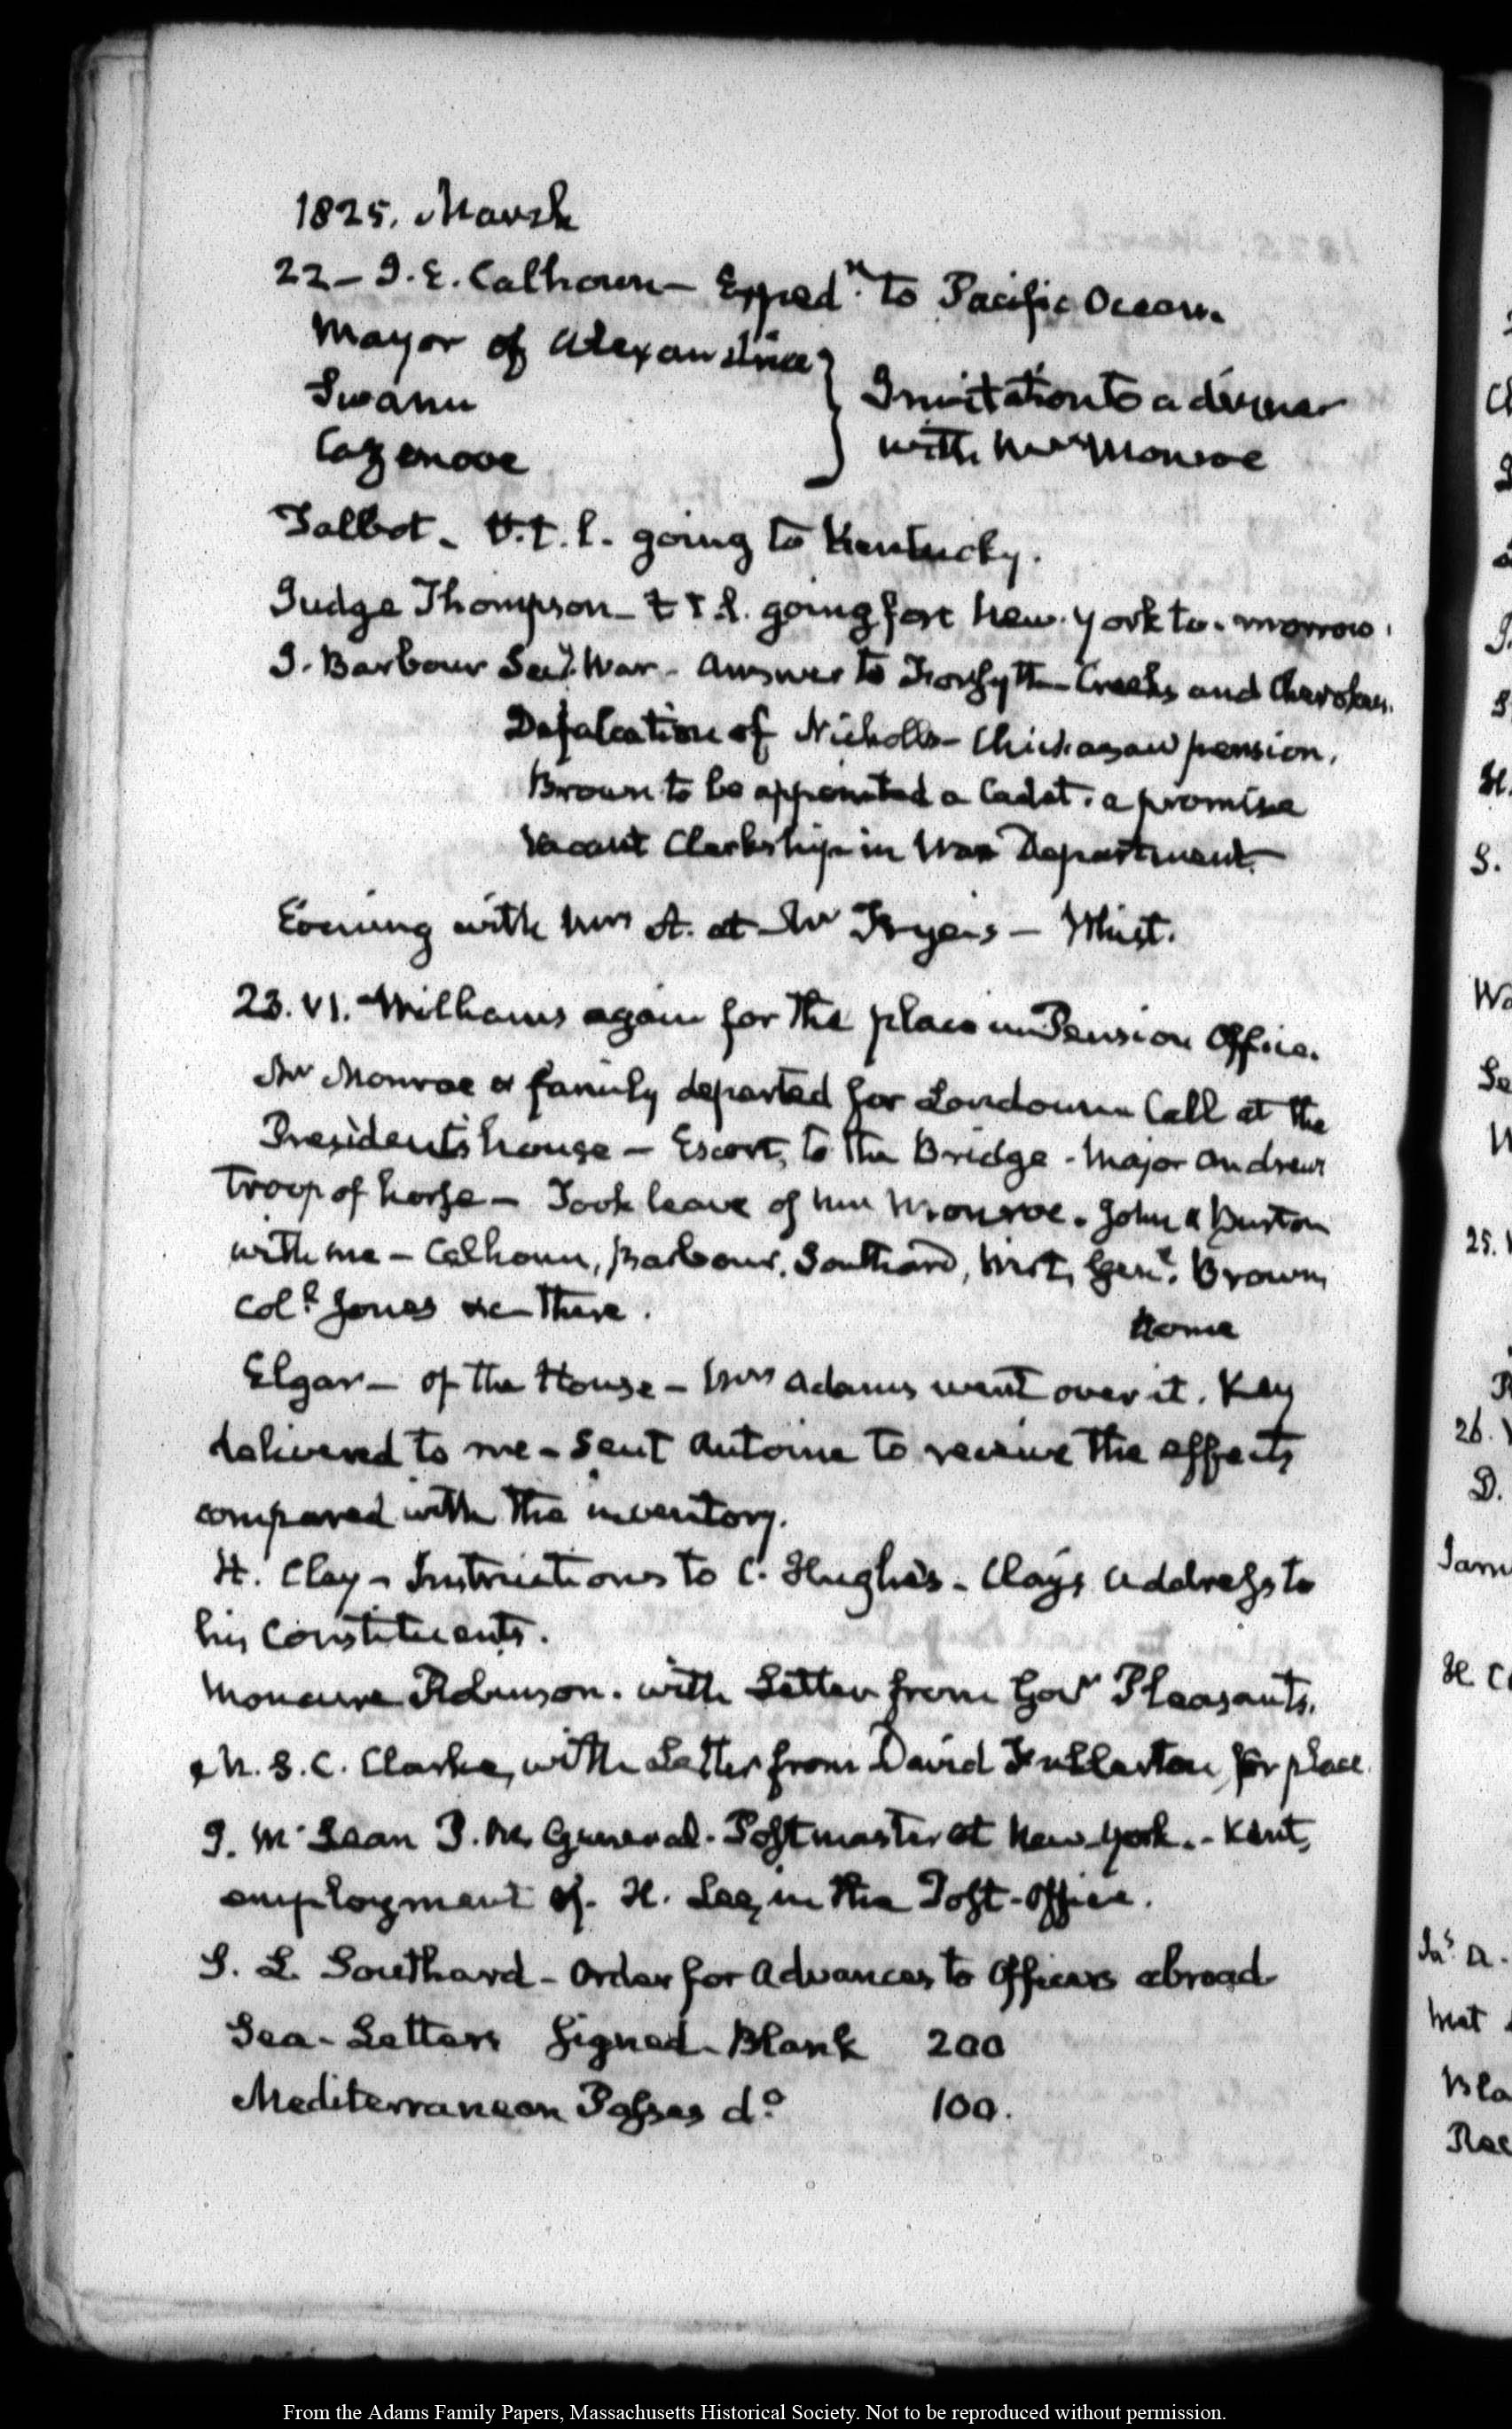 1825. March
22 – J. E. Calhoun – Expedn. to Pacific Ocean.
Mayor of Alexandria
Swann
Cazenove
Invitation to a dinner
with Mr Monroe
Talbot – t.t.l. going to Kentucky.
Judge Thompson – t t.l. going for New-York to-morrow.
J. Barbour Secy. War – Answer to Forsyth – Creeks and Cherokees.
Defalcation of Nicholls – Chickasaw pension.
Brown to be appointed a Cadet. a promise
Vacant Clerkship in War Department.
Evening with Mrs A. at Dr Tryeis – Whist.
23. VI. Williams again for the place in Pension Office.
Mr Monroe & family departed for Loudoun – Call at the
President's house – Escort, to the Bridge – Major Andrews
Troop of horse – Took leave of Mrs Monroe. John &
with me – Calhoun, Barbour, Southard, Wirt, Genl. Brown,
Coll. Jones &c – there.
home
Elgar – of the House – Mrs Adams went over it. Key
delivered to me – Sent Antoine to receive the effects
compared with the inventory.
H. Clay – Instructions to C. Hughes – Clay's Address to
his Constituents.
Moncure Robinson. with Letter from Govr Pleasants.
M. S. C. Clarke, with Letter from David Fullerton, for place
J. McLean P. M. General. Postmaster at New-York. – Kent,
employment of H. Lee, in the Post-Office.
S. L. Southard – Order for Advances to Officers abroad
Sea-Letters Signed – Blank 200
Mediterranean Passes do 100.
From the Adams Family Papers, Massachusetts Historical Society. Not to be reproduced without permission.